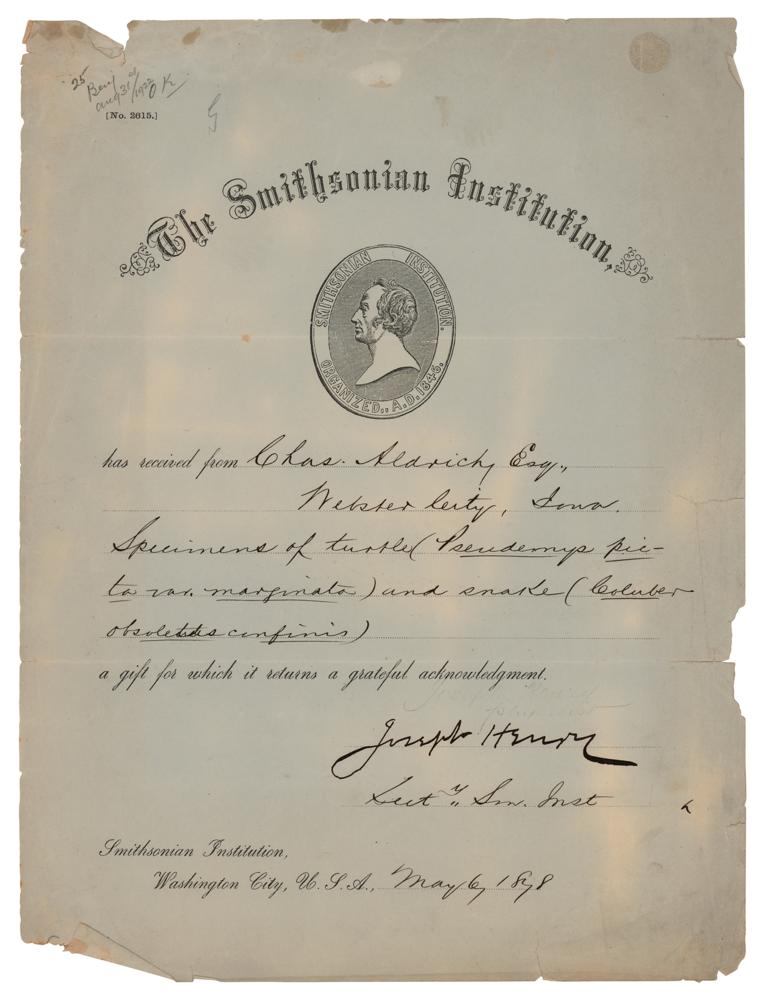 25
Aug 31st/1922 OK
[No. 2615.]
G
The Smithsonian Institution,
SMITHSONIAN INSTITUTION.
ORGANIZED,, A.D. 1846.
has received from Chas. Aldrich, Esq.,
Webster City, Iowa.
Specimens of turtle (Pseudemys pic-
ta var. marginata) and snake (Coluber
obsoletus confinis)
a gift for which it returns a grateful acknowledgment.
Joseph Henry
Secty,, Sm. Inst
Smithsonian Institution,
Washington City, U. S. A., May 6, 1878